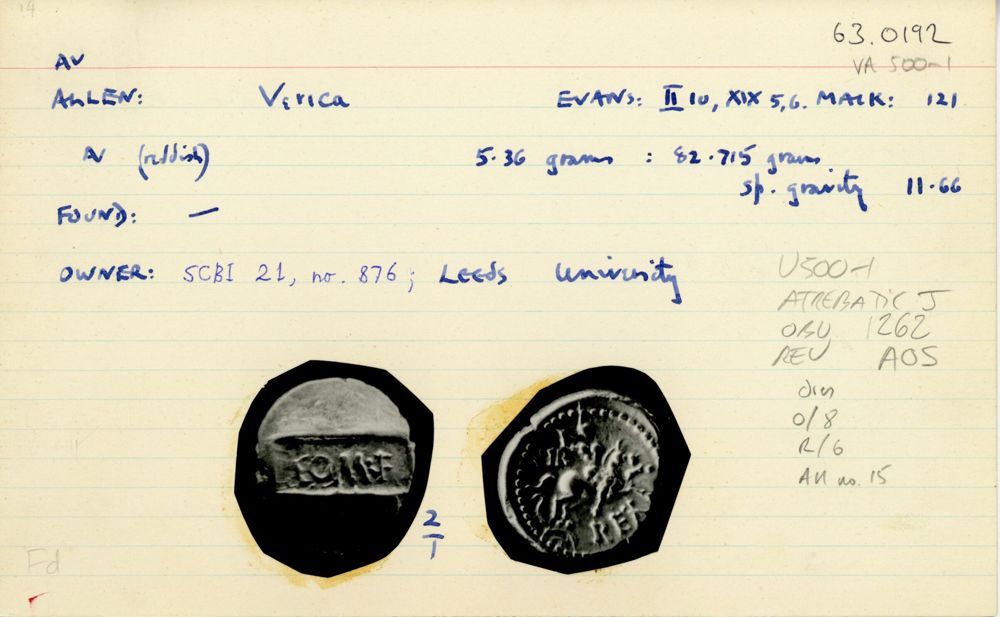 14
63.0192
VA 500-1
AV
ALLEN: Verica EVANS: II 10, XIX 5,6. MACK: 121
AV (reddish) 5.36 grams : 82.715 grains
sp. gravity 11.66
FOUND: —
OWNER: SCBI 21, no. 876; LEEDS University
U500-1
ATREBATIC J
OBV 1262
REV AOS
dies
O/8
R/6
All no. 15
COMMF
VIR
REX
2/1
Fd